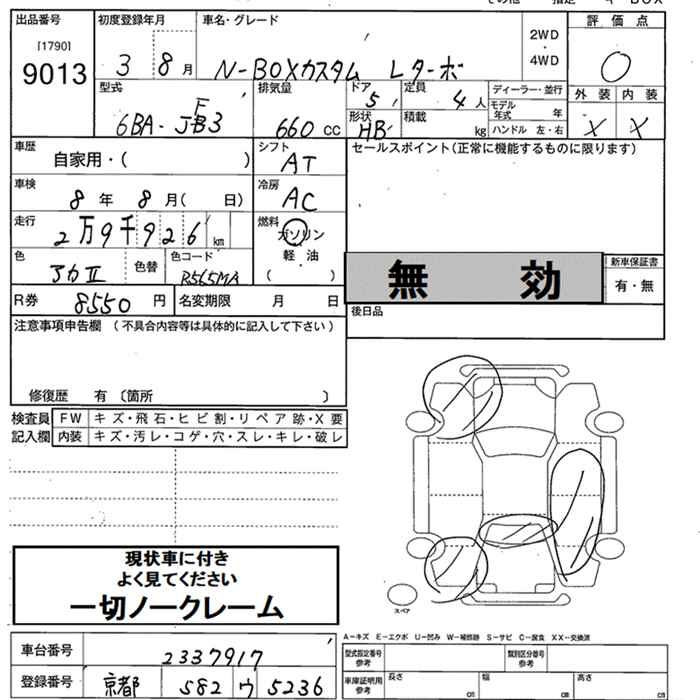 出品番号 初度登録年月 車名・グレード 評価点
[1790]
9013 3 8月 N-BOXカスタム Lターボ 2WD・4WD
型式 排気量 ドア 定員 ディーラー・並行 外装 内装
6BA-JF3 660cc 5 4人 モデル年式 年 X X
形状 HB 積載 kg ハンドル 左・右
車歴 自家用・( ) シフト AT セールスポイント(正常に機能するものに限ります)
車検 8年 8月( 日) 冷房 AC
走行 2万9千926km 燃料 ガソリン
軽油
( )
色 アカⅡ 色替 色コード R565MA 無効 新車保証書
有・無
R券 8550円 名変期限 月 日 後日品
注意事項申告欄 (不具合内容等は具体的に記入して下さい)
修復歴 有 〔箇所 〕
検査員 FW キズ・飛石・ヒビ割・リペア跡・X要
記入欄 内装 キズ・汚レ・コゲ・穴・スレ・キレ・破レ
現状車に付き
よく見てください
一切ノークレーム
スペア
A-キズ E-エクボ U-凹み W-補修跡 S-サビ C-腐食 XX-交換済
車台番号 2337917 型式指定番号 参考 類別区分番号 参考
登録番号 京都 582 ウ 5236 車庫証明用 参考 長さ cm 幅 cm 高さ cm